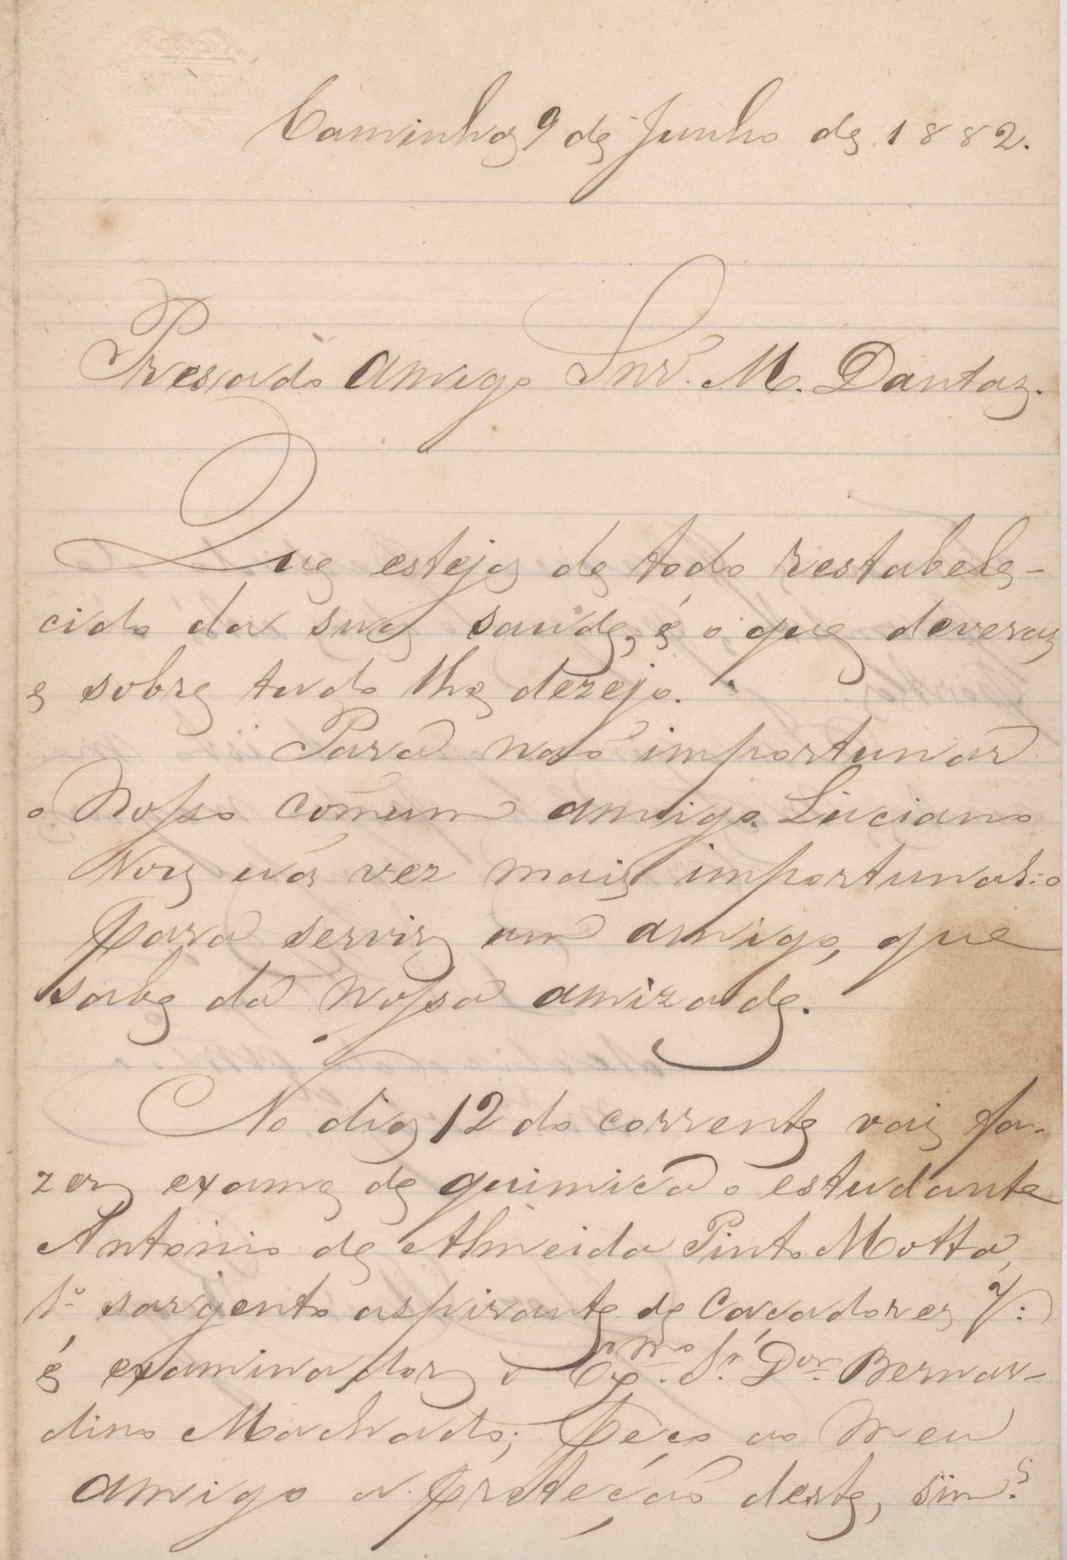 Caminha 9 de Junho de 1882.
Presado Amigo Snr. M. Dantas.
Que esteja de todo restabele-
cido da sua saude, é o que deveras
e sobre tudo lhe dezejo.
Para não importunar
o Nosso comum amigo Luciano
vou uã vez mais importunal:o
para servir um amigo, que
sabe da nossa amizade.
No dia 12 do corrente vai fa-
zer exame de quimica o estudante
Antonio de Almeida Pinto Motta,
1º sargento aspirante de Caçadores 7:
é examinador o Exmo. Sr. Dor. Bernar-
dino Machado; Peço ao meu
amigo a protecção deste,